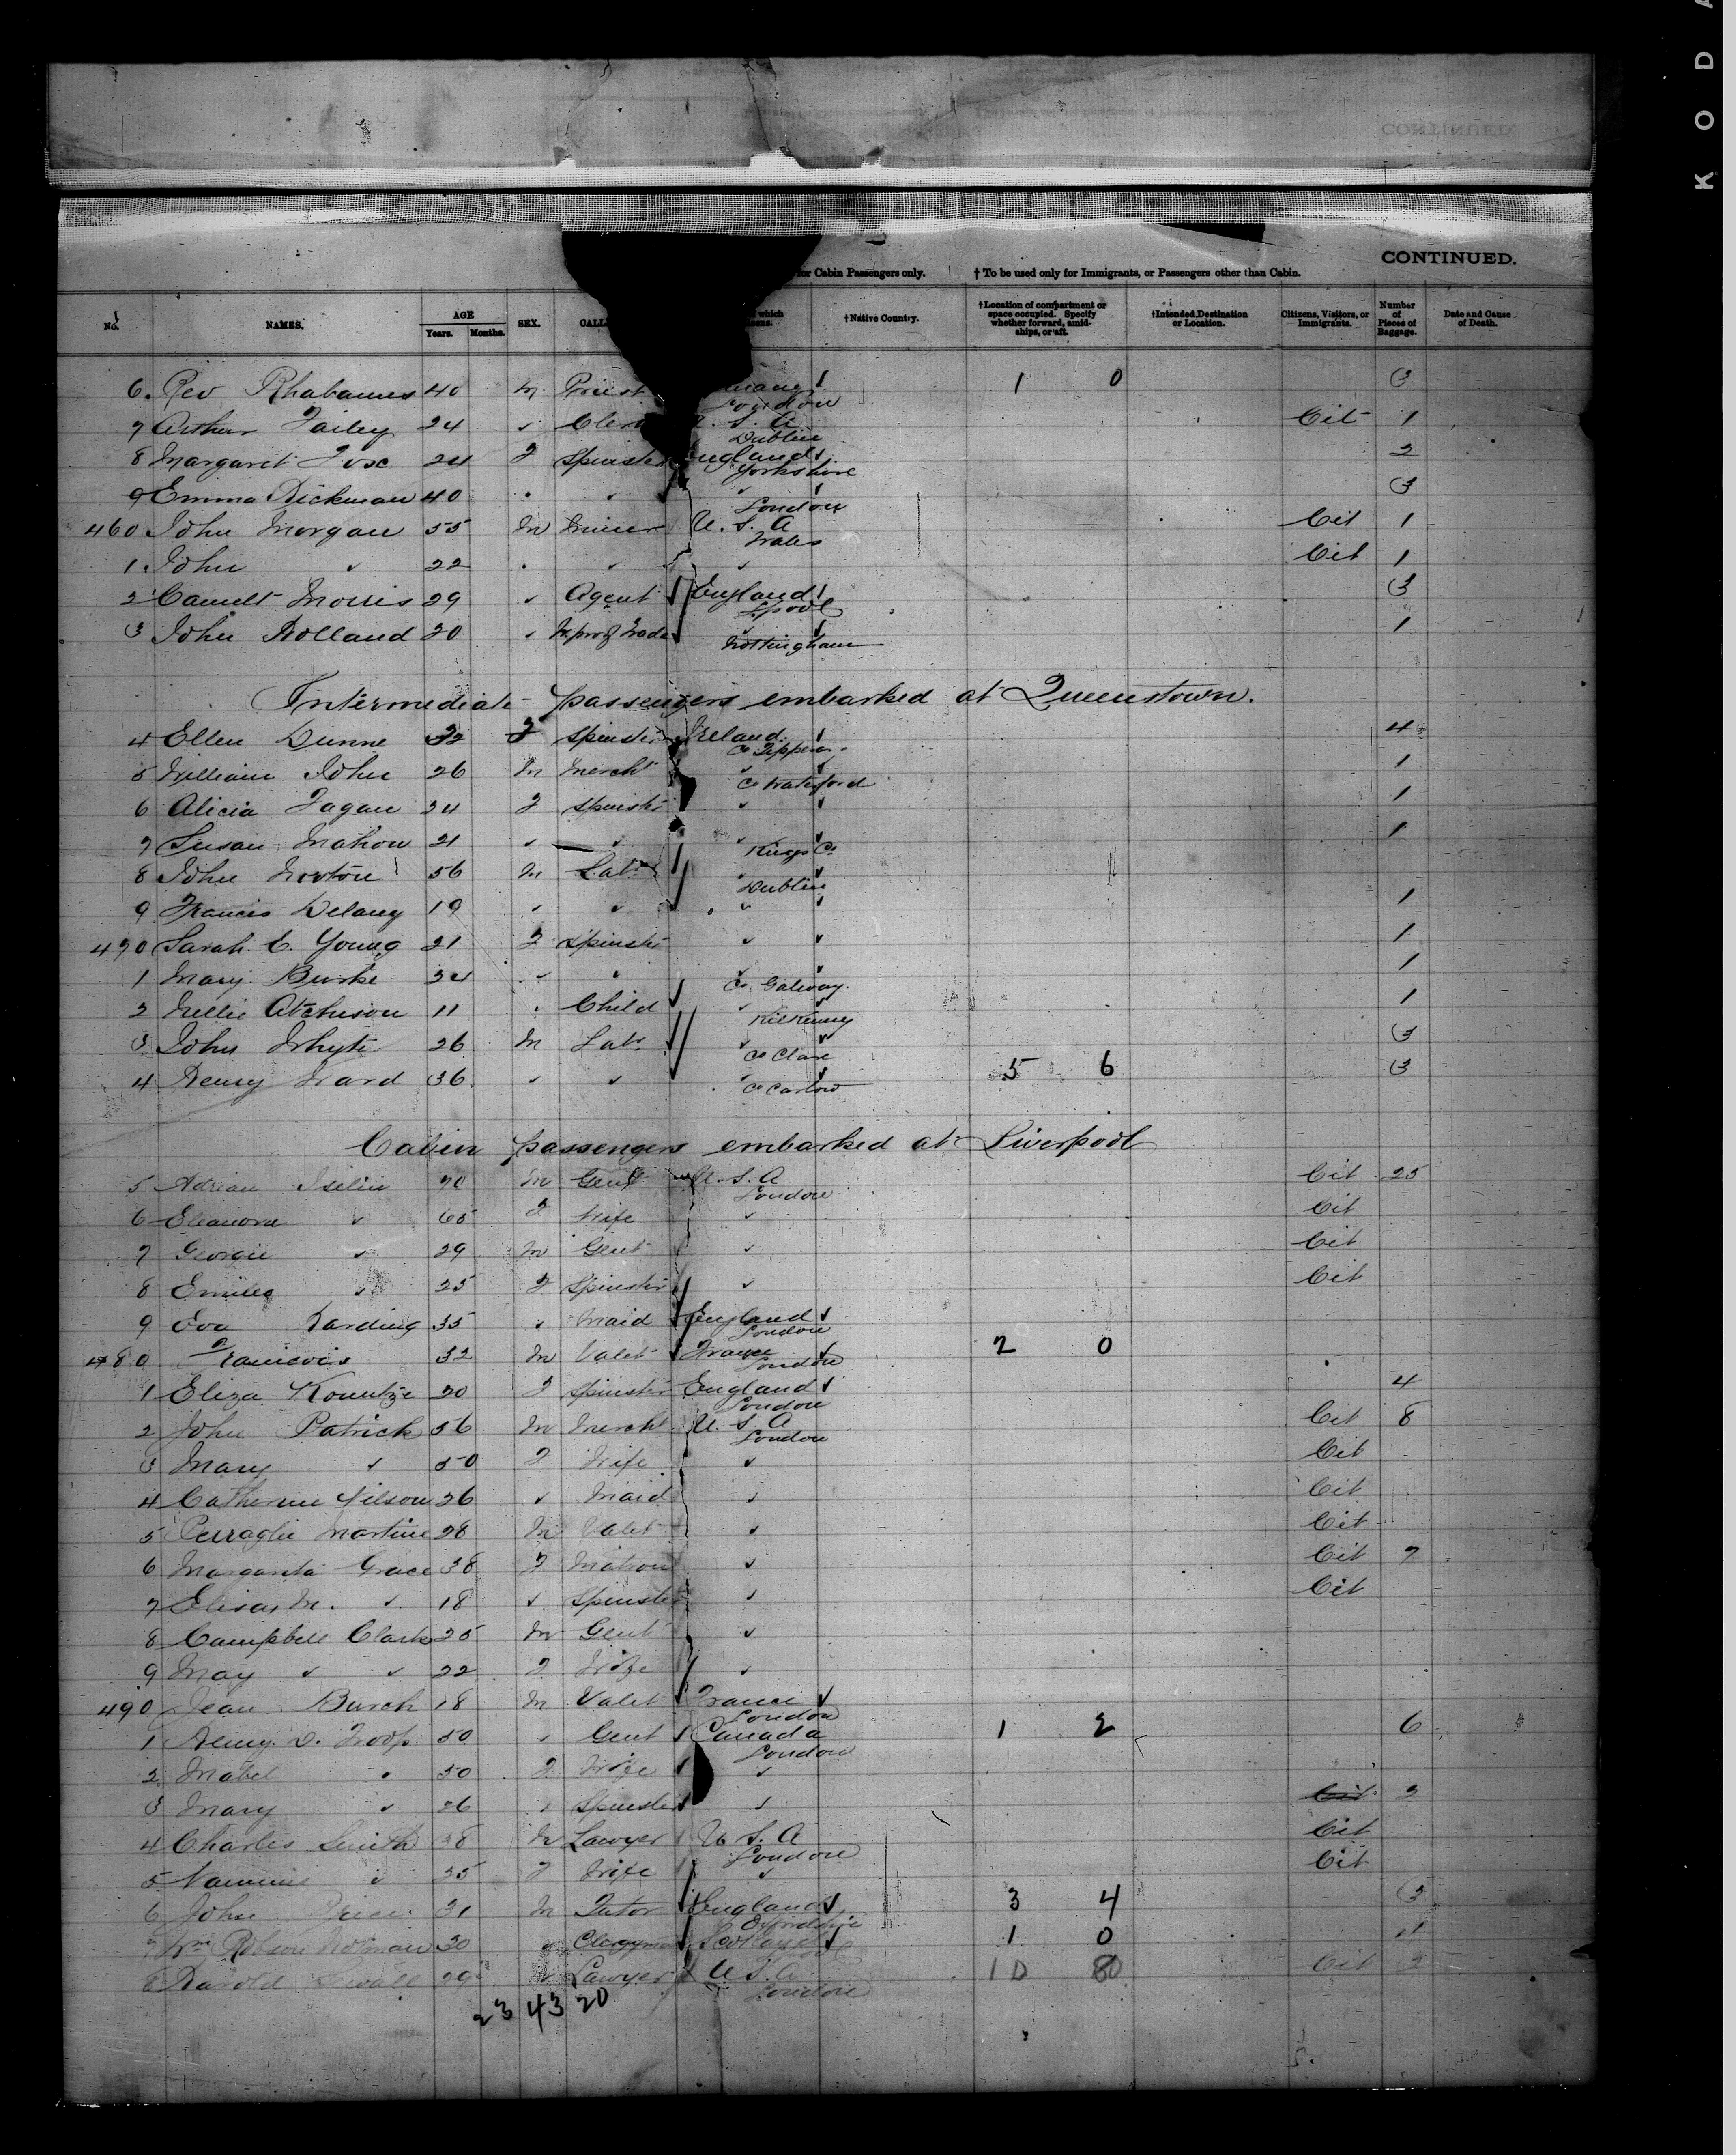 K O D A
CONTINUED.
for Cabin Passengers only. † To be used only for Immigrants, or Passengers other than Cabin.
No. NAMES. AGE Years. Months. SEX. CALL which †Native Country. †Location of compartment or space occupied. Specify whether forward, amidships, or aft. †Intended Destination or Location. Citizens, Visitors, or Immigrants. Number of Pieces of Baggage. Date and Cause of Death.
6. Rev 40 M Priest 1 0 3
London
7 Arthur Failey 24 ✓ Clerk U. S. A Cit 1
Dublin
8 Margaret 24 F Spinster England 2
Yorkshire
9 Emma Hickman 40 3
London
460 John Morgan 55 M Miner U. S. A Cit 1
Wales
1. John ✓ 22 Cit 1
2 Morris 29 ✓ Agent England 3
L'pool
3 John Holland 20 ✓ 1
Nottingham
Intermediate passengers embarked at Queenstown.
4 Ellen Dunne 32 F Spinster Ireland 4
Co Tipper
5 William John 26 M Mercht 1
Co Waterford
6 Alicia Fagan 24 F Spinster ✓ 1
7 Susan Mahon 21 ✓ ✓ ✓ 1
Kings Co
8 John Norton 56 M Labr
Dublin
9 Francis Delany 19 ✓ ✓ ✓ 1
470 Sarah E. Young 21 F Spinster ✓ 1
1 Mary Burke 24 ✓ ✓ ✓ 1
Co. Galway
2 Nellie Atchison 11 Child ✓ 1
Kilkenny
3 John Whyte 26 M Labr ✓ 3
Co Clare
4 Henry Ward 36 ✓ ✓ 5 6 3
Co Carlow
Cabin passengers embarked at Liverpool
5 Adrian Iselin 70 M Gent U. S. A Cit 25
London
6 Eleanora ✓ 65 F Wife ✓ Cit
7 Georgie ✓ 29 M Gent ✓ Cit
8 Emilea ✓ 25 F Spinster ✓ Cit
9 Eva Harding 35 ✓ Maid England
London
480 Francois 32 M Valet France 2 0
London
1 Eliza Kountze 20 F Spinster England 4
London
2 John Patrick 56 M Mercht U. S. A Cit 8
London
3 Mary ✓ 50 F Wife ✓ Cit
4 Catherine Nilson 26 ✓ Maid ✓ Cit
5 Martine 28 M Valet ✓ Cit
6 Margarita Grace 38 F Matron ✓ Cit 7
7 Elisa M. ✓ 18 ✓ Spinster ✓ Cit
8 Campbell Clark 25 M Gent ✓
9 May ✓ ✓ 22 F Wife ✓
490 Jean Burch 18 M Valet France
London
1 Henry D. Troop 50 Gent Canada 1 2 6
London
2 Mabel 50 F Wife ✓
3 Mary ✓ 26 Spinster ✓ Cit 2
4 Charles Smith 38 M Lawyer U S. A Cit
London
5 Nannie ✓ 35 F Wife ✓ Cit
6 John Price 31 M Tutor England 3 4 3
7 Wm Robson 30 Clergyman Scotland 1 0
8 Harold Sewall 29 ✓ Lawyer U S. A 10 80 Cit 2
London
23 43 20